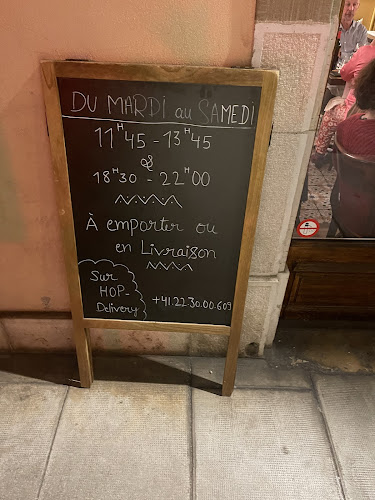 DU MARDI au SAMEDI
11H45 - 13H45
&
18H30 - 22H00
À emporter ou
en Livraison
Sur
HOP-
Delivery
+41.22.30.00.609